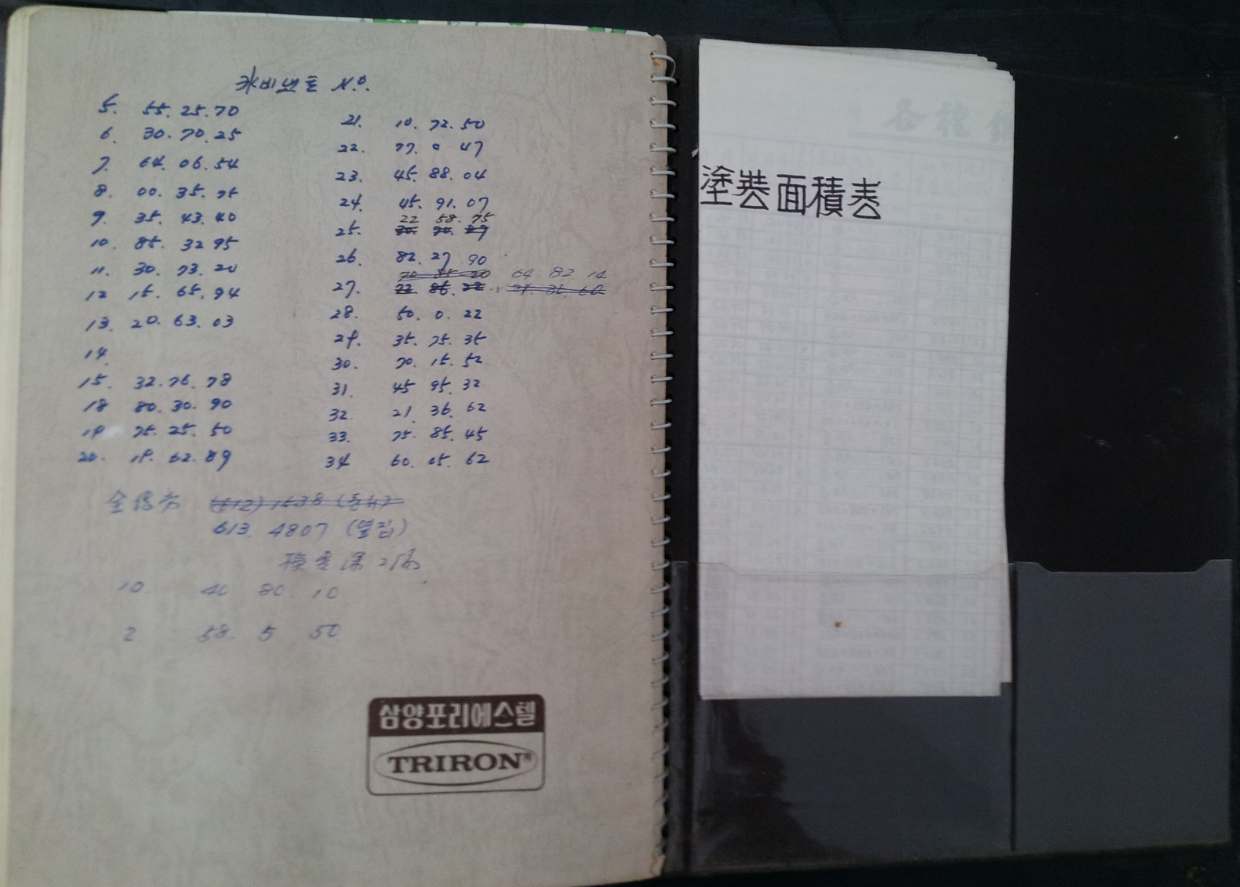 캐비넷트 No.
5. 55. 25. 70
6. 30. 70. 25
7. 64. 06. 54
8. 00. 35. 75
9. 35. 43. 40
10. 85. 32 95
11. 30. 73. 20
12 15. 65. 94
13. 20. 63. 03
14.
15. 32. 76. 78
18 80. 30. 90
19 75. 25. 50
20. 18. 62. 89
21. 10. 72. 50
22. 77. 0 47
23. 45. 88. 04
24. 45. 91. 07
22 58. 75
25.
26. 82. 27 90
64 82 14
27.
28. 50. 0. 22
29. 35. 75. 35
30. 70. 15. 52
31. 45 95. 32
32. 21. 36. 62
33. 75. 85. 45
34 60. 05. 62
613. 4807 (옆집)
10. 40 80. 10
2 58. 5 50
삼양포리에스텔
TRIRON®
塗裝面積表
各種